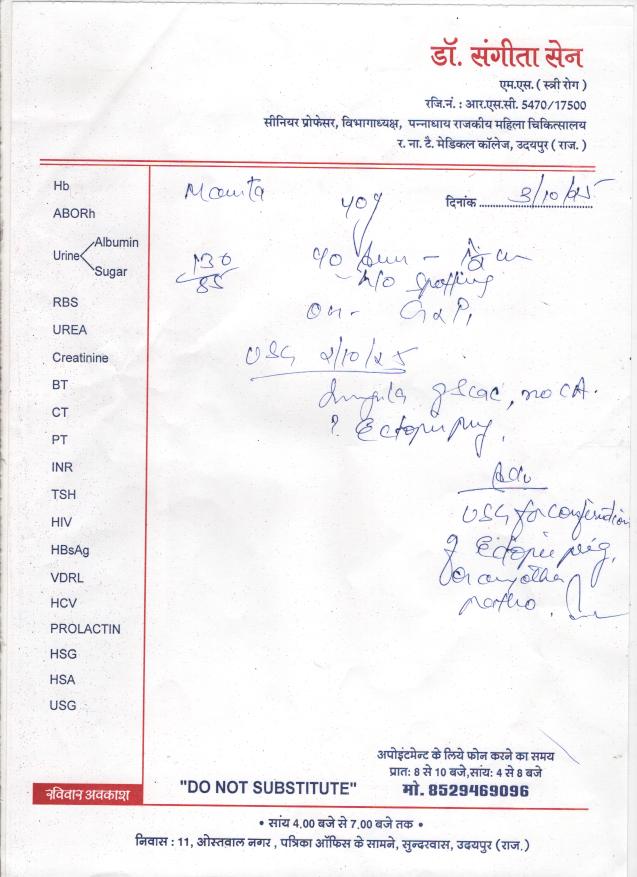 डॉ. संगीता सेन
एम.एस. ( स्त्री रोग )
रजि.नं. : आर.एस.सी. 5470/17500
सीनियर प्रोफेसर, विभागाध्यक्ष, पन्नाधाय राजकीय महिला चिकित्सालय
र. ना. टै. मेडिकल कॉलेज, उदयपुर ( राज. )
दिनांक 3/10/25
Hb
ABORh
Urine Albumin
Sugar
RBS
UREA
Creatinine
BT
CT
PT
INR
TSH
HIV
HBsAg
VDRL
HCV
PROLACTIN
HSG
HSA
USG
Mamta 40y
130/85
H/O spotting
G2P1
USG 2/10/25
gsac, no CA.
? Ectopic preg.
Adv
USG for
of Ectopic preg,
or any other
patho.
अपोइंटमेन्ट के लिये फोन करने का समय
प्रात: 8 से 10 बजे, सांय: 4 से 8 बजे
मो. 8529469096
रविवार अवकाश
"DO NOT SUBSTITUTE"
• सांय 4.00 बजे से 7.00 बजे तक •
निवास : 11, ओस्तवाल नगर , पत्रिका ऑफिस के सामने, सुन्दरवास, उदयपुर (राज.)